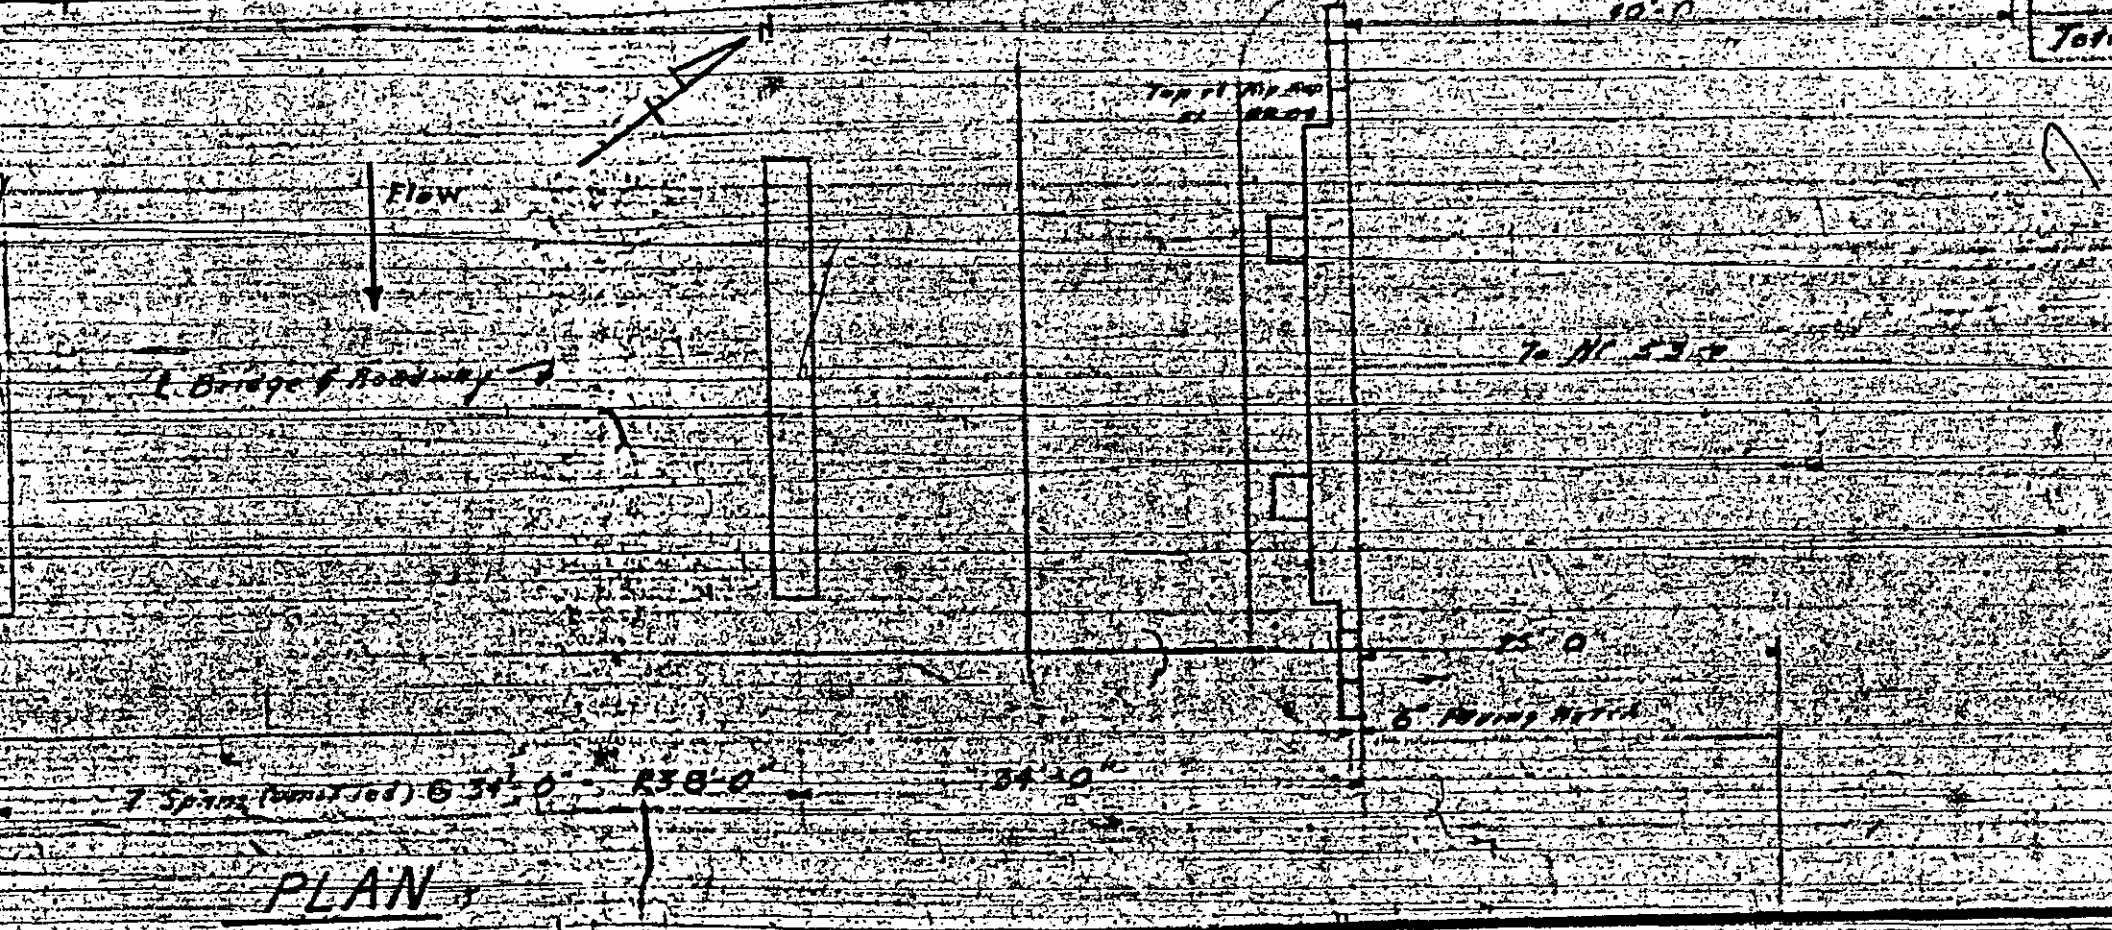 N
40'-0"
Top of Rip Rap
Flow
℄ Bridge & Roadway
To NC
25'-0
6" Paving Notch
7-Spans (omitted) @ 34'-0" = 238'-0"
34'-0"
PLAN